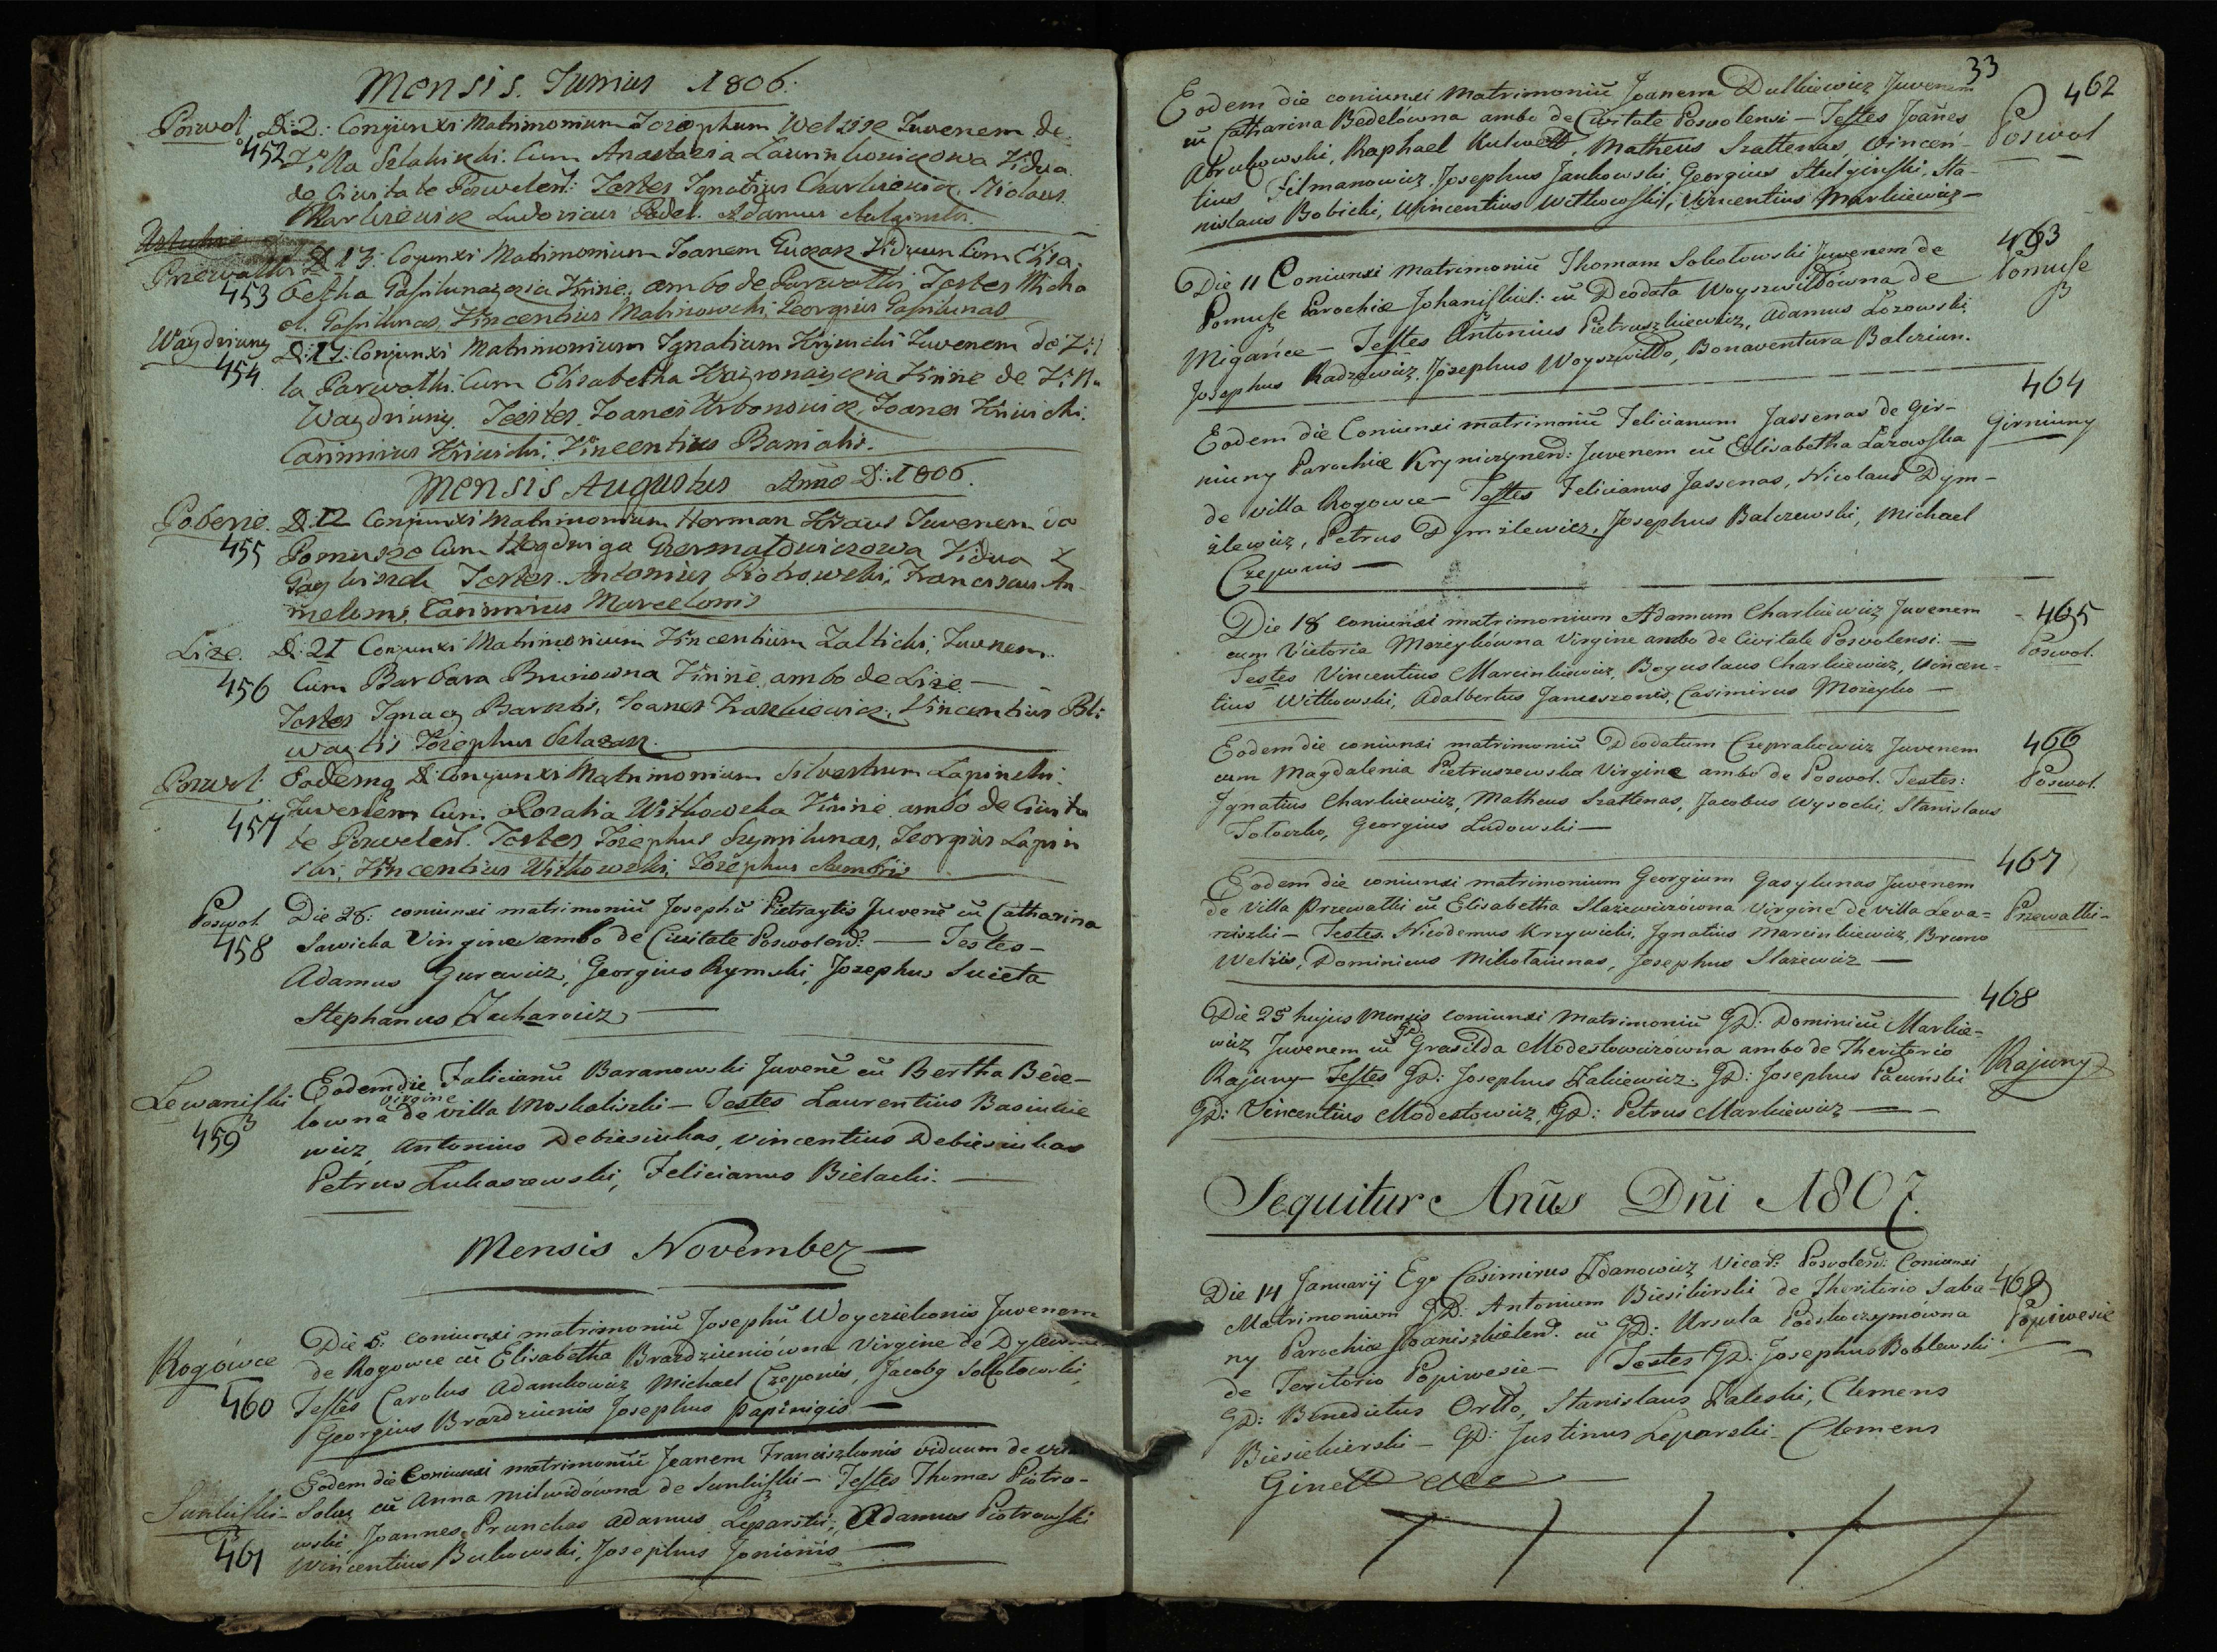 Mensis. Junius 1806.
Poswol D: 2. Conjunxi Matrimonium Josephum Welzise Juvenem de
452 Villa Szlahiszki. Cum Anastazia Laurinkowiczowa Vidua
de Civitate Poswolen: Testes Ignatius Charkiewicz, Nicolaus
Markiewicz Ludovicus Adamus
Przewalki D 13. Conjunxi Matrimonium Joanem Viduum Cum Elisa
453 betha Virine. ambo de Parwalki, Testes Micha
el. Gasilunas, Vincentius Malinowski, Georgius Gasilunas
Waydziuny D: 17: Conjunxi Matrimonium Ignatium Krzywicki Juvenem de Vil
454 la Parwalki. Cum Elisabetha Virine de Villa
Waydziuny. Testes. Joanes Urbonowicz, Joanes Kriwicki.
Casimirus Kriwicki, Vincentius
Mensis Augustus Anno D: 1806.
D: 12 Conjunxi Matrimonium Herman Juvenem de
455 Pomusze Cum Jegdwiga Germatowiczowa Vidua
Testes. Antonius Piotrowski, Franciscus
Casimirus Marcelonis
Lize. D: 21 Conjunxi Matrimonium Vincentium Zalticki, Juvenem.
456 Cum Barbara Bruniowna Virine. ambo de Lize. —
Testes Ignacy Joanes Vincentius
Josephus
Poswol Eodemq D: Conjunxi Matrimonium Silvestrum Lapinski
457 Juvenem Cum Rozalia Witkowska Virine ambo de Civita
te Poswolen. Testes, Josephus Szymilunas, Georgius Lapin
ski, Vincentius Witkowski, Josephus
Poswol Die 28: coniunxi matrimoniũ Josephũ Pietraytis Juvenẽ cũ Catharina
458 Sawicka Virgine ambo de Civitate Poswolen: — Testes —
Adamus Gurewicz, Georgius Rymski, Josephus Swieta
Stephanus Zacharowicz —
Lewaniszki Eodem die Falicianũ Baranowski Juvenẽ cũ Bertha Bede-
459 lowna virgine de villa Moskaliszki — Testes Laurentius Basinkie
wicz, Antonius Debiesiukas, Vincentius Debiesiukas
Petrus Lukaszewski, Felicianus Bielacki. —
Mensis November —
Rogówce Die 5. coniunxi matrimoniũ Josephũ Woyczielionis Juvenem
de Rogowce cũ Elisabetha Brazdziuniówna Virgine de
460 Testes Carolus Adamkowicz Michael Czeponis, Jacobg Sokolowski,
Georgius Brazdziunis Josephus Papinigis —
Eodem die Coniunxi matrimoniũ Joanem Franciszkonis viduum de
Sunkiszki — cũ Anna Milwidówna de Sunkiszki — Testes Thomas Piotro-
461 wski, Joannes Prunckas Adamus Leparski, Adamus Piotrowski
Vincentius Bukowski, Josephus Jonionis —
33
462
Eodem die coniunxi Matrimoniũ Joanem Dulkiewicz Juvenem
cũ Catharina Bedelówna ambo de Civitate Poswolensi — Testes Joãnes
Abrulowski, Raphael Kulwett, Matheus Szattenas, Vincen- Poswol
tius Filmanowicz, Josephus Jankowski Georgius Stulginski, Sta-
nislaus Bobicki, Wincentius Witkowski, Vincentius Markiewicz —
463
Die 11 Coniunxi Matrimoniũ Thomam Sokołowski Juvenem de Pomusze
Pomusze Parochiæ Johaniszkiel: cũ Deodata Woyszwiłdówna de
Migańce — Testes Antonius Pietruszkiewicz, Adamus Łozowski,
Josephus Radzewicz, Josephus Woyszwiłło, Bonaventura Balezium.
464
Eodem die Coniunxi matrimoniũ Felicianum Jassenas de Gir- Girniuny
niuny Parochiæ Kryniczynen: Juvenem cũ Elisabetha Lazowska
de villa Rogowce — Testes Felicianus Jassenas, Nicolaus Dym-
żlewicz, Petrus Dymżlewicz, Josephus Balczewski, Michael
Czeponis —
Die 18 coniunxi matrimonium Adamum Charkiewicz Juvenem - 465
cum Victoria Mozeykówna Virgine ambo de Civitate Poswolensi. — Poswol.
Testes Vincentius Marcinkiewicz, Boguslaus Charkiewicz, Vincen-
tius Witkowski, Adalbertus Janeszonis, Casimirus Mozeyko —
Eodem die coniunxi matrimoniũ Deodatum Czeprakowicz Juvenem 466
cum Magdalenia Pietruszewska Virgine ambo de Poswol. Testes: Poswol.
Ignatius Charkiewicz, Matheus Szattenas, Jacobus Wysocki, Stanislaus
Tołoczko, Georgius Ludowski —
467
Eodem die coniunxi matrimonium Georgium Gasylunas Juvenem
de Villa Przewalki cũ Elisabetha Slazewiczówna Virgine de villa Leva= Przewalki —
niszki — Testes. Nicodemus Krzywicki, Ignatius Marcinkiewicz, Bruno
Welzis, Dominicus Mikołaiunas, Josephus Slazewicz —
468
Die 25 hujus Mensis coniunxi Matrimoniũ GD: Dominicũ Markie-
wicz Juvenem cũ GD: Grasilda Modestowiczówna ambo de Theritorio Rajuny
Rajuny — Testes GD: Josephus Zakiewicz, GD: Josephus Pacuński
GD: Vincentius Modestowicz, GD: Petrus Markiewicz —
Sequitur Anũs Dñi 1807.
Die 14 Januarij Ego Casimirus Zdanowicz Vicar: Poswolen: Coniunxi
Matrimonium GD: Antonium Biesikierski de Theritorio Saba- 469
ny Parochiæ Joaniszkielen: cũ GD: Ursula Podskoczymówna Popiwesie
de Teritorio Popiwesie — Testes GD: Josephus Boblewski
GD: Benedictus Ortto, Stanislaus Zaleski, Clemens
Biesiekierski — GD: Justinus Leparski — Clemens
Ginett